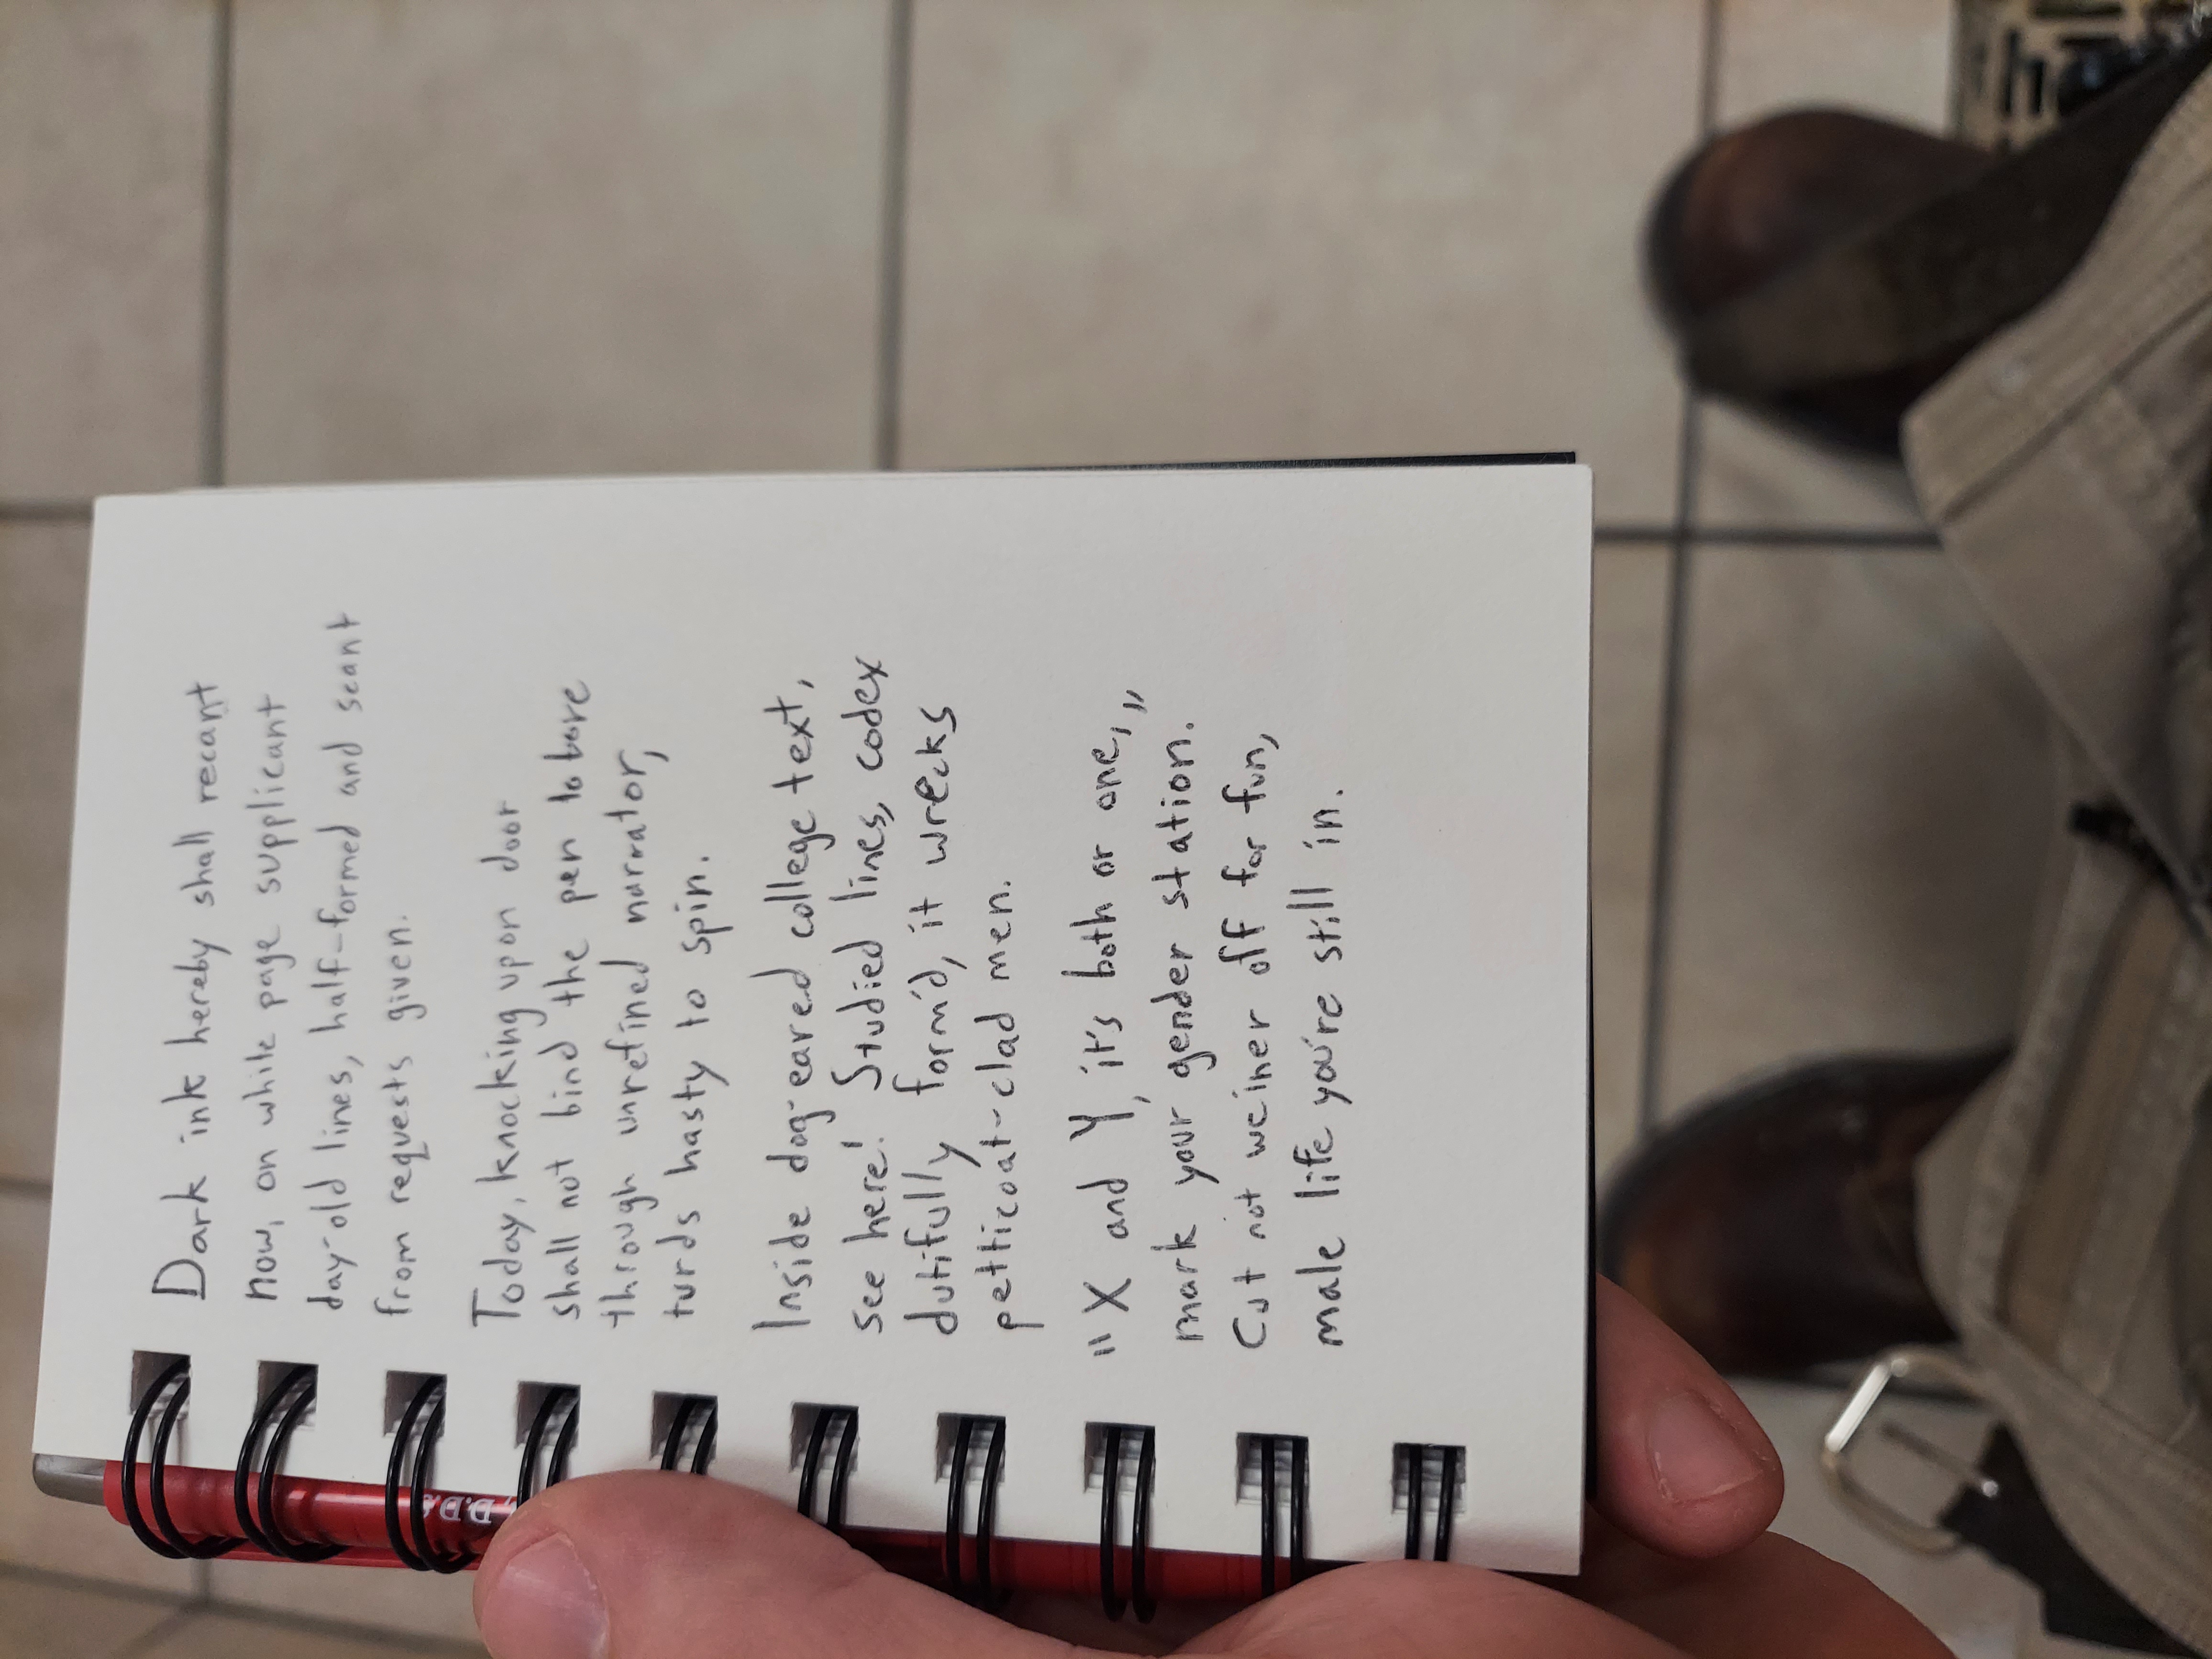 Dark ink hereby shall recant
now, on while page supplicant
day-old lines, half-formed and scant
from requests given.
Today, knocking upon door
shall not bind the pen to bore
through unrefined narrator,
turds hasty to spin.
Inside dog-eared college text,
see here! Studied lines, codex
dutifully form'd, it wrecks
petticoat-clad men.
"X and Y, it's both or one,"
mark your gender station.
Cut not weiner off for fun,
male life you're still in.
D.D.S